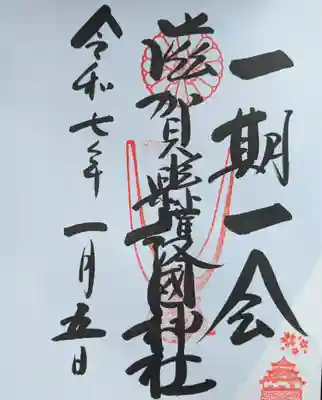 一期一会
滋賀縣護國神社
令和七年 一月五日